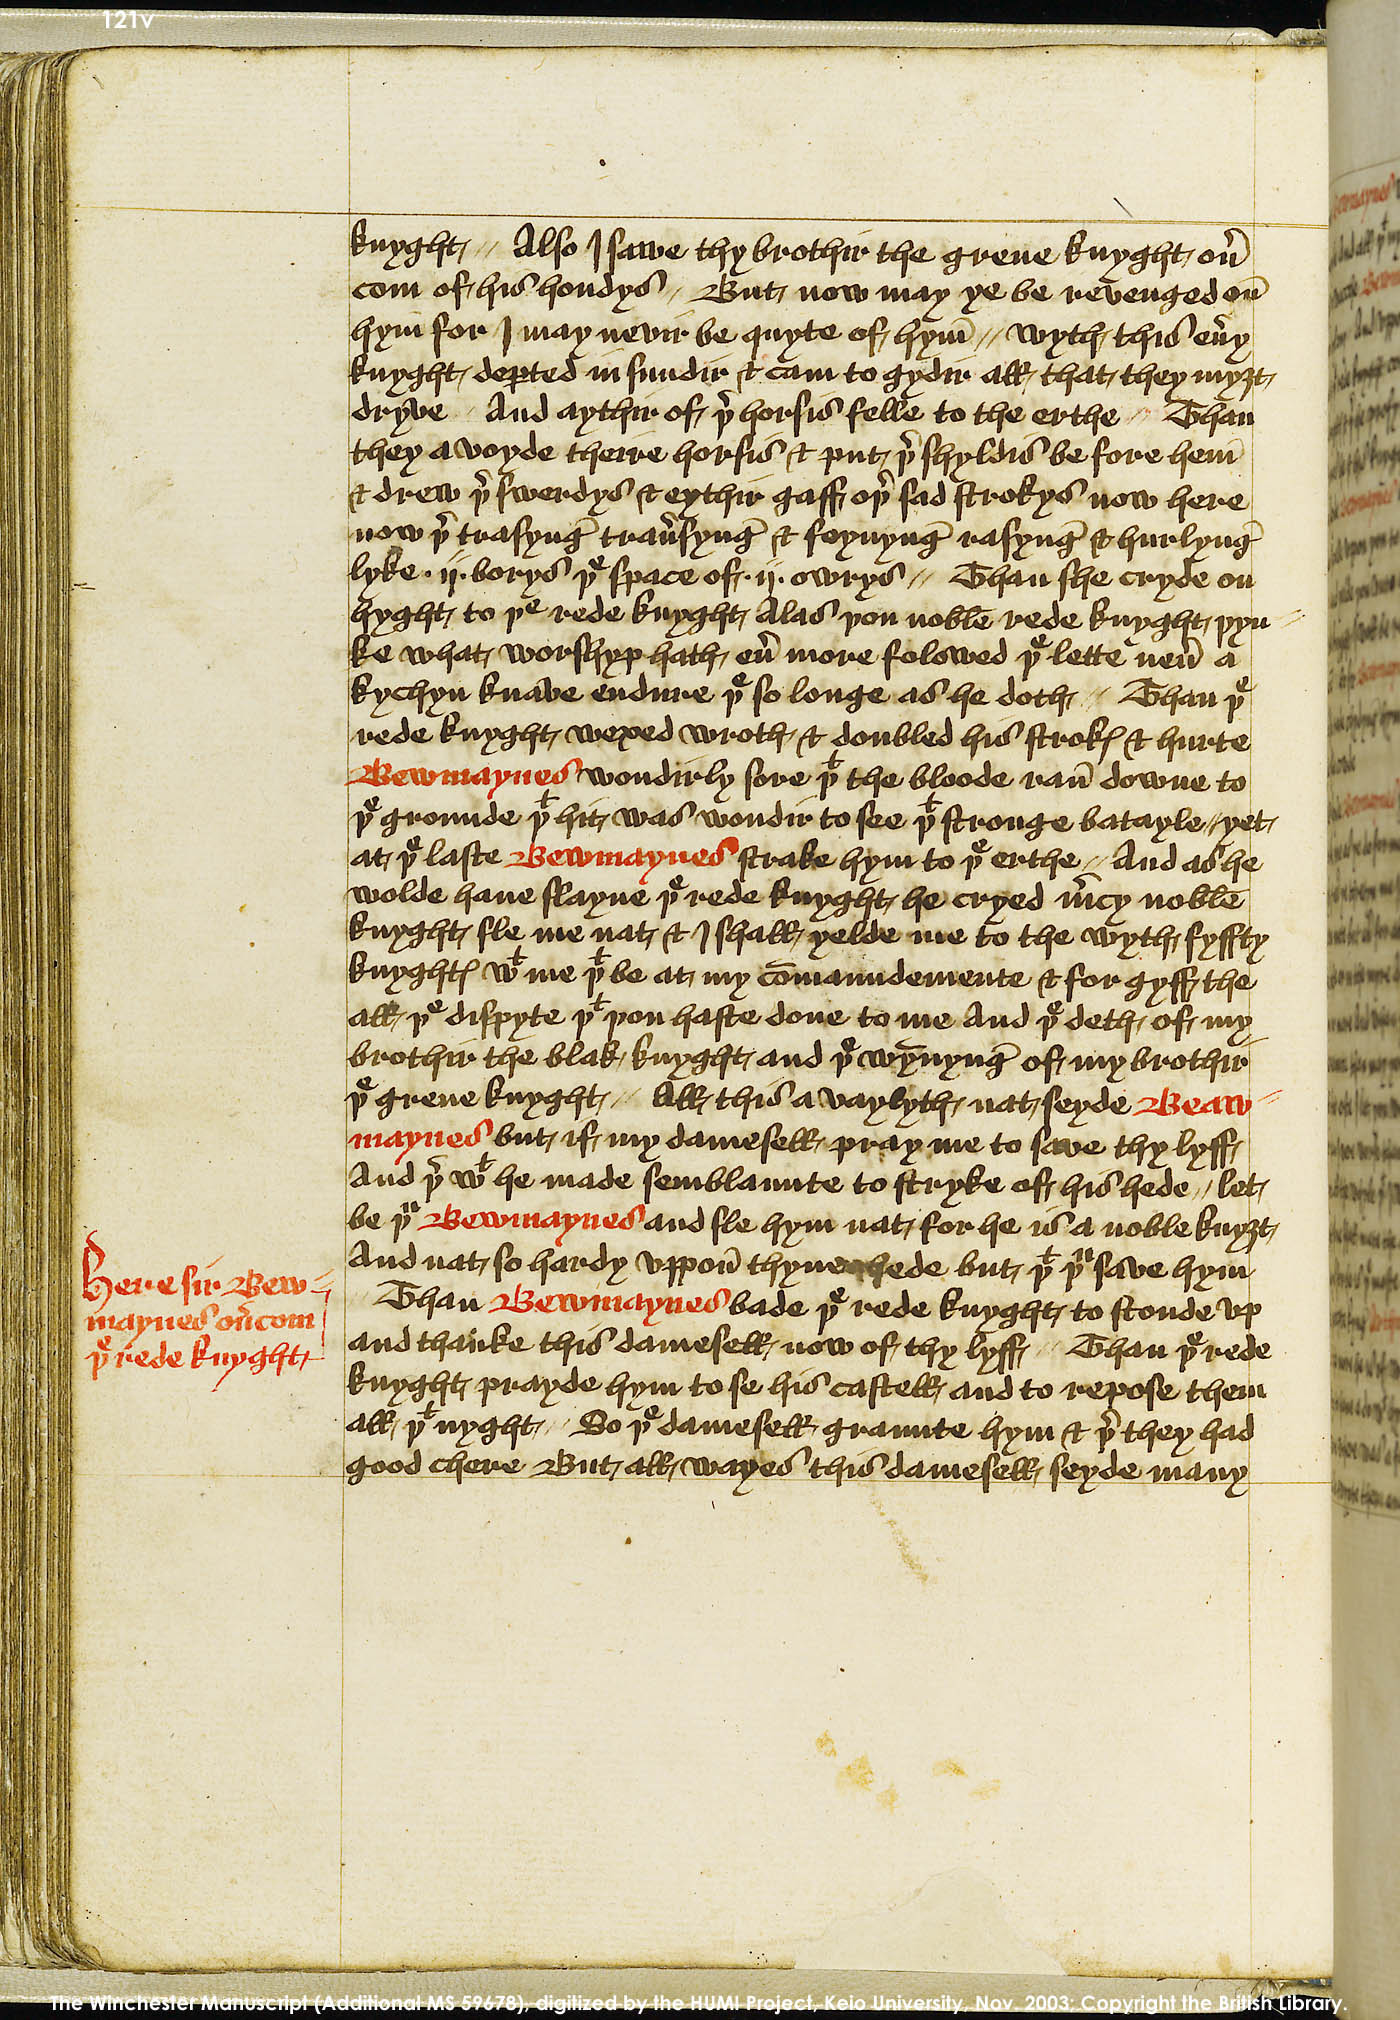 121v
knyght // Also I sawe thy brothir the grene knyght ou͛
com of his hondys // But now may ye be revenged on̄
hym for I may nevir be quyte of hym̄ // wyth this eu͛y
knyght deꝑted in sundir & cam to gydir all that they myȝt
dryve // And aythir of þ͛ horsis felle to the erthe // Than
they a voyde theire horsis & put þ͛ shyldis be fore hem̄
& drew þ͛ swerdys & eythir gaff oþ͛ sad strokys now here
now þ͛ trasynḡ trau͛synḡ & foynynḡ rasynḡ & hurlynḡ
lyke · ij · borys þᵉ space of · ij · owrys // Than she cryde on
hyght to þᵉ rede knyght Alas þou noble rede knyght þyn //
ke what worshyp hath eu͛ more folowed þᵉ lette neu͛ a
kychyn knave endure þᵉ so longe as he doth // Than þᵉ
rede knyght wexed wroth & doubled his strokꝭ & hurte
Bewmaynes wondirly sore þᵗ the bloode ran̄ downe to
þᵉ grounde þᵗ hit was wondir to see þᵗ stronge batayle // yet
at þᵉ laste Bewmaynes strake hym to þᵉ erthe // And as he
wolde haue slayne þᵉ rede knyght he cryed m͛cy noble
knyght sle me nat & I shall yelde me to the wyth fyffty
knyghtꝭ wᵗ me þᵗ be at my com̄aundemente & for gyff the
all þᵉ dispyte þᵗ þou haste done to me And þᵉ deth of my
brothir the blak knyght and þᵉ wȳnynḡ of my brothir
þᵉ grene knyght // All this a vaylyth nat seyde Beaw //
maynes but if my damesell pray me to save thy lyff
And þ͛ wᵗ he made semblaunte to stryke of his hede // let
be þᵘ Bewmaynes and sle hym nat for he is a noble knyȝt
And nat so hardy vppon̄ thyne hede but þᵗ þᵘ save hym
Than Bewmaynes bade þᵉ rede knyght to stonde vp
and thanke this damesell now of thy lyff // Than þᵉ rede
knyght prayde hym to se his castell and to repose them
all þᵗ nyght // So þᵉ damesell graunte hym & þ͛ they had
good chere But all wayes this damesell seyde many
Here sir Bew //
maynes ou͛com
þᵉ rede knyght
The Winchester Manuscript (Additional MS 59678), digitized by the HUMI Project, Keio University, Nov. 2003; Copyright the British Library.